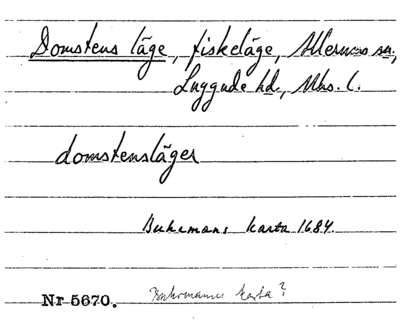 Domstens läge, fiskeläge, Allerums sn.,
Luggude hd., Mhs. l.
domstensläger
Buhrmans karta 1684.
Nr 5670. Buhrmanns karta?